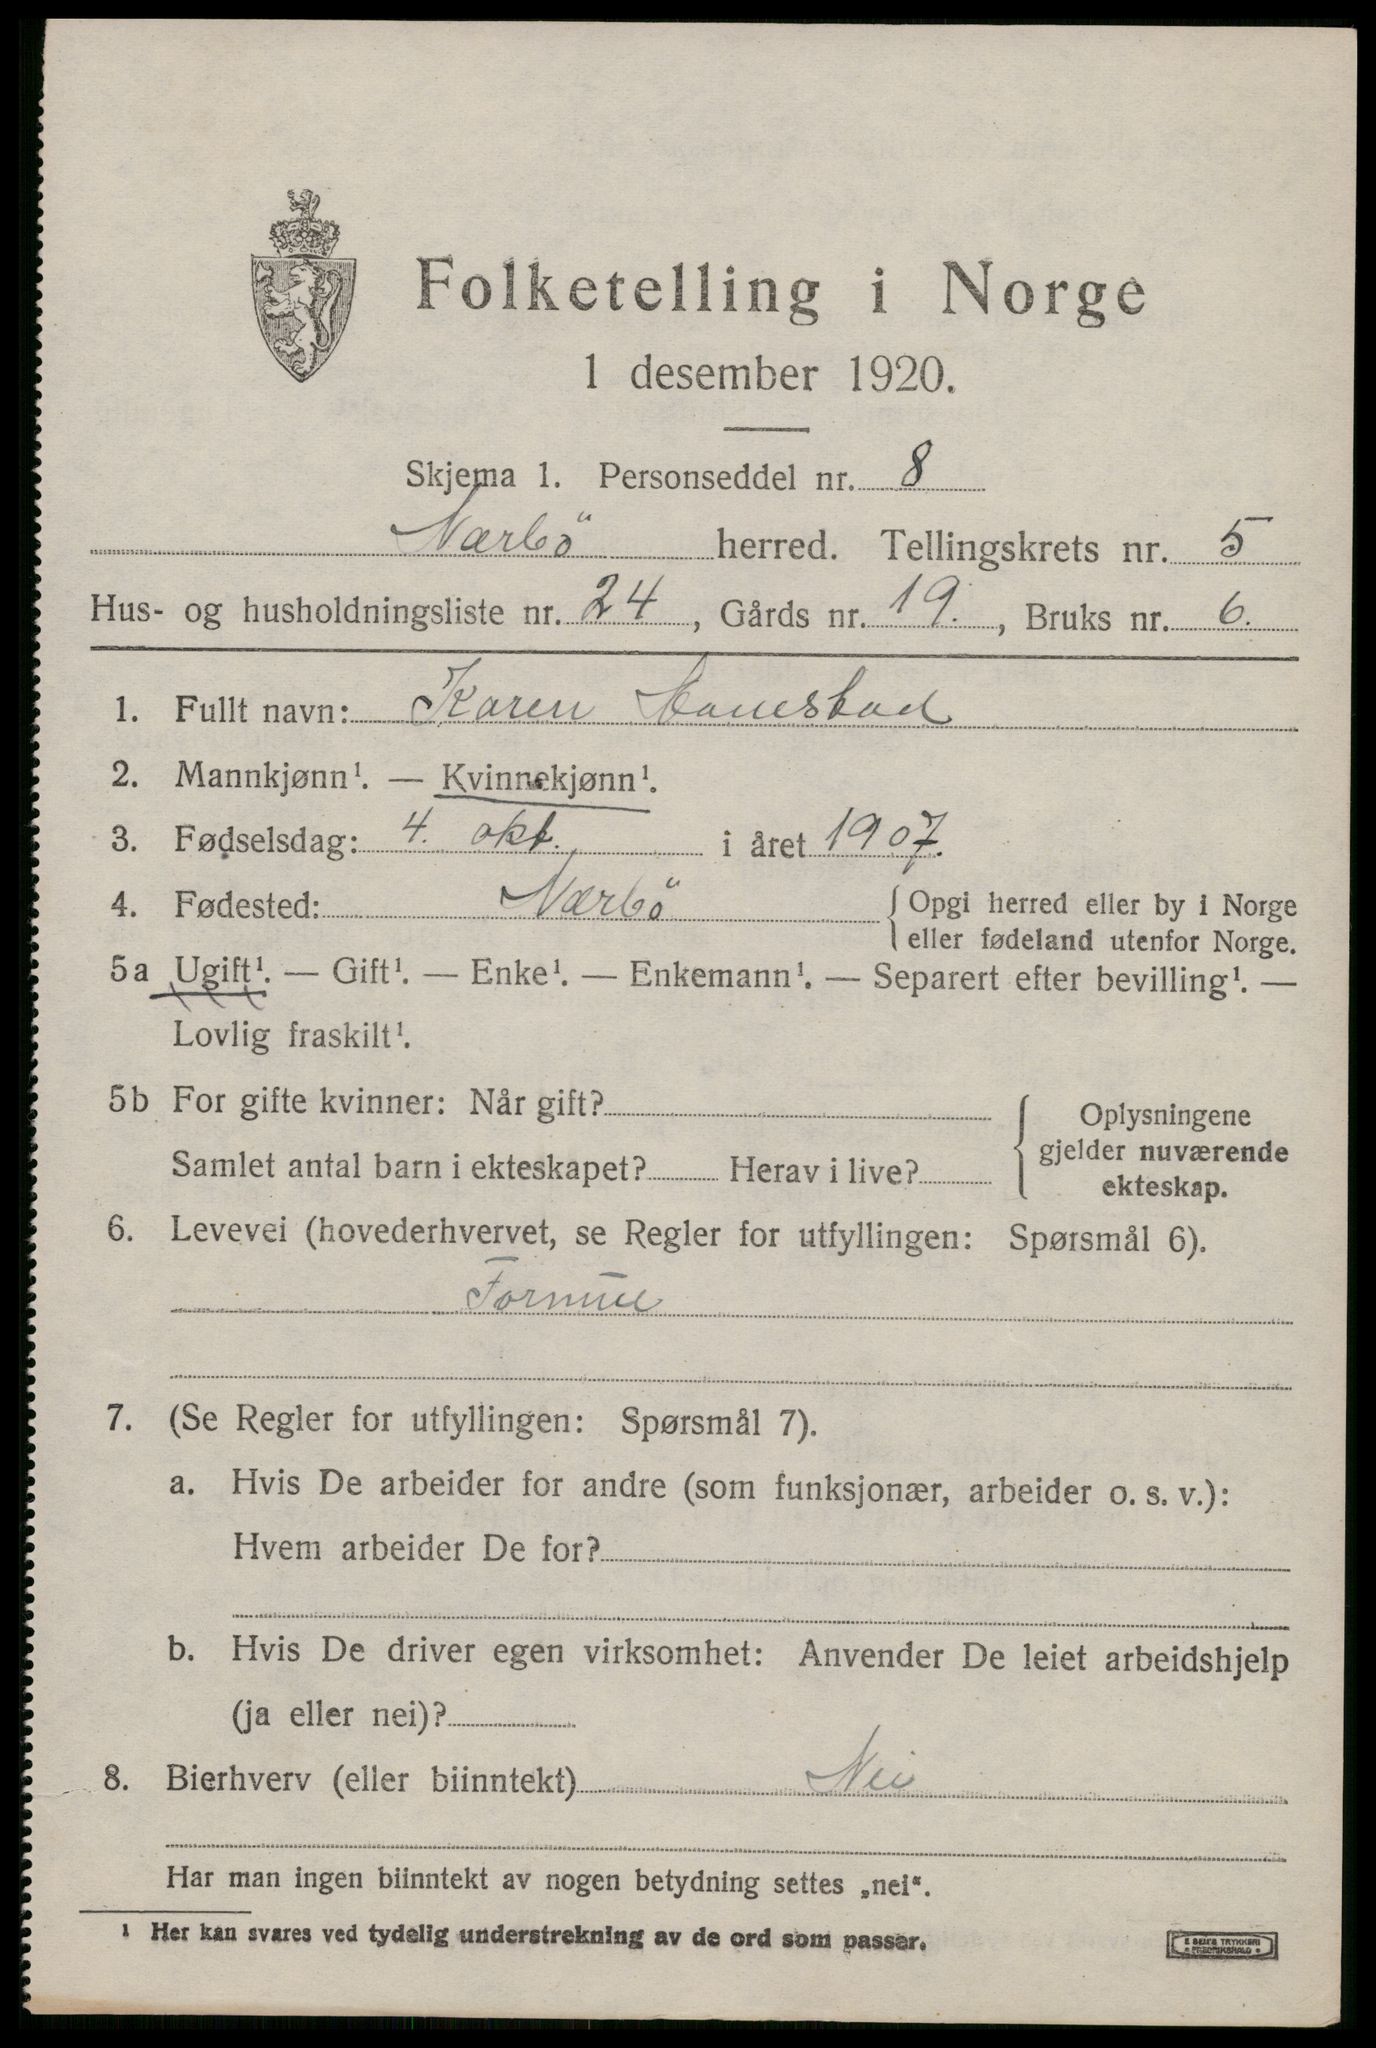 Folketelling i Norge
1 desember 1920.
Skjema 1. Personseddel nr. 8
Nærbö herred. Tellingskrets nr. 5
Hus- og husholdningsliste nr. 24, Gårds nr. 19., Bruks nr. 6.
1. Fullt navn: Karen
2. Mannkjønn¹. — Kvinnekjønn¹.
3. Fødselsdag: 4. okt. i året 1907.
4. Fødested: Nærbö { Opgi herred eller by i Norge
eller fødeland utenfor Norge.
5a Ugift¹. — Gift¹. — Enke¹. — Enkemann¹. — Separert efter bevilling¹. —
Lovlig fraskilt¹.
5b For gifte kvinner: Når gift?
Samlet antal barn i ekteskapet? Herav i live?
{ Oplysningene
gjelder nuværende
ekteskap.
6. Levevei (hovederhvervet, se Regler for utfyllingen: Spørsmål 6).
7. (Se Regler for utfyllingen: Spørsmål 7).
a. Hvis De arbeider for andre (som funksjonær, arbeider o. s. v.):
Hvem arbeider De for?
b. Hvis De driver egen virksomhet: Anvender De leiet arbeidshjelp
(ja eller nei)?
8. Bierhverv (eller biinntekt) Nei
Har man ingen biinntekt av nogen betydning settes „nei“.
¹ Her kan svares ved tydelig understrekning av de ord som passer.
E SEM'S TRYKKERI
FREDRIKSHALD